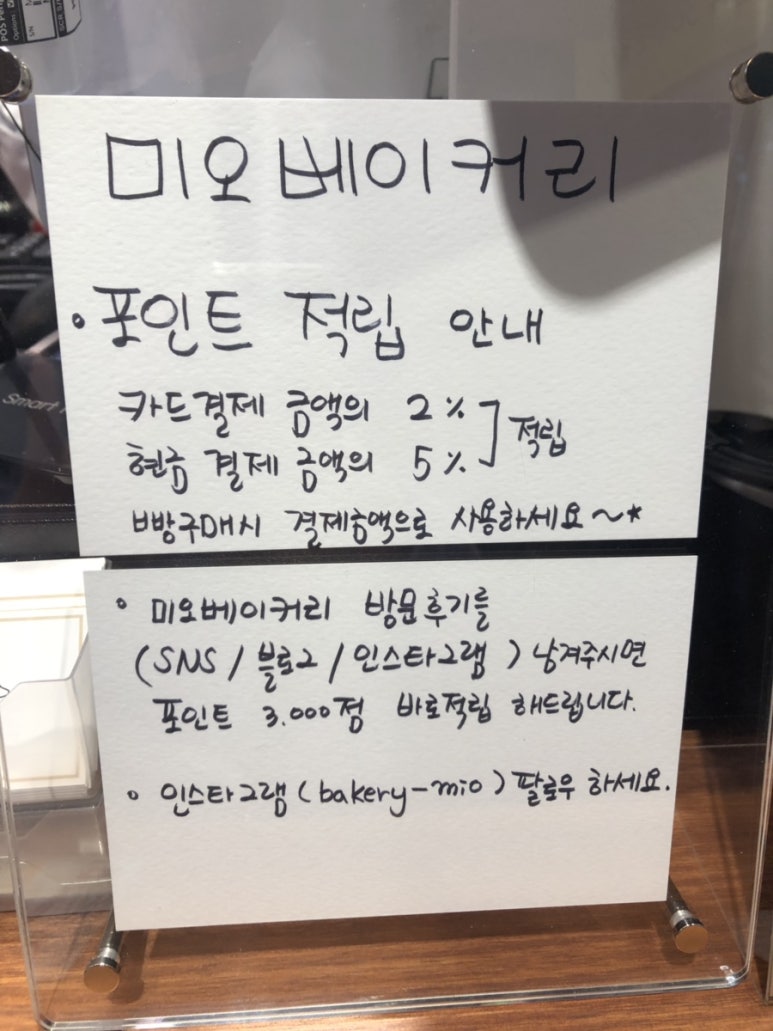 미오베이커리
• 포인트 적립 안내
카드결제 금액의 2%
현금 결제 금액의 5%
적립
빵구매시 결제금액으로 사용하세요~*
• 미오베이커리 방문후기를
(SNS / 블로그 / 인스타그램) 남겨주시면
포인트 3.000점 바로적립 해드립니다.
• 인스타그램 (bakery-mio) 팔로우 하세요.